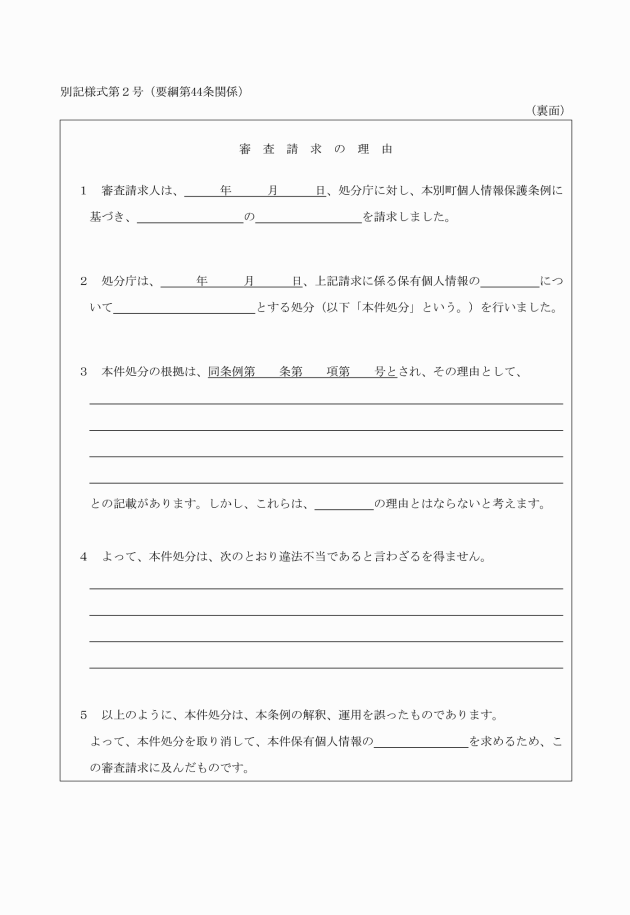 別記様式第２号（要綱第44条関係）
（裏面）
審　査　請　求　の　理　由
１　審査請求人は、　　　年　　　月　　　日、処分庁に対し、本別町個人情報保護条例に
基づき、　　　　　　　　　の　　　　　　　　　を請求しました。
２　処分庁は、　　　年　　　月　　　日、上記請求に係る保有個人情報の　　　　　につ
いて　　　　　　　　　　　　とする処分（以下「本件処分」という。）を行いました。
３　本件処分の根拠は、同条例第　　条第　　項第　　号とされ、その理由として、
との記載があります。しかし、これらは、　　　　　の理由とはならないと考えます。
４　よって、本件処分は、次のとおり違法不当であると言わざるを得ません。
５　以上のように、本件処分は、本条例の解釈、運用を誤ったものであります。
よって、本件処分を取り消して、本件保有個人情報の　　　　　　　　を求めるため、こ
の審査請求に及んだものです。